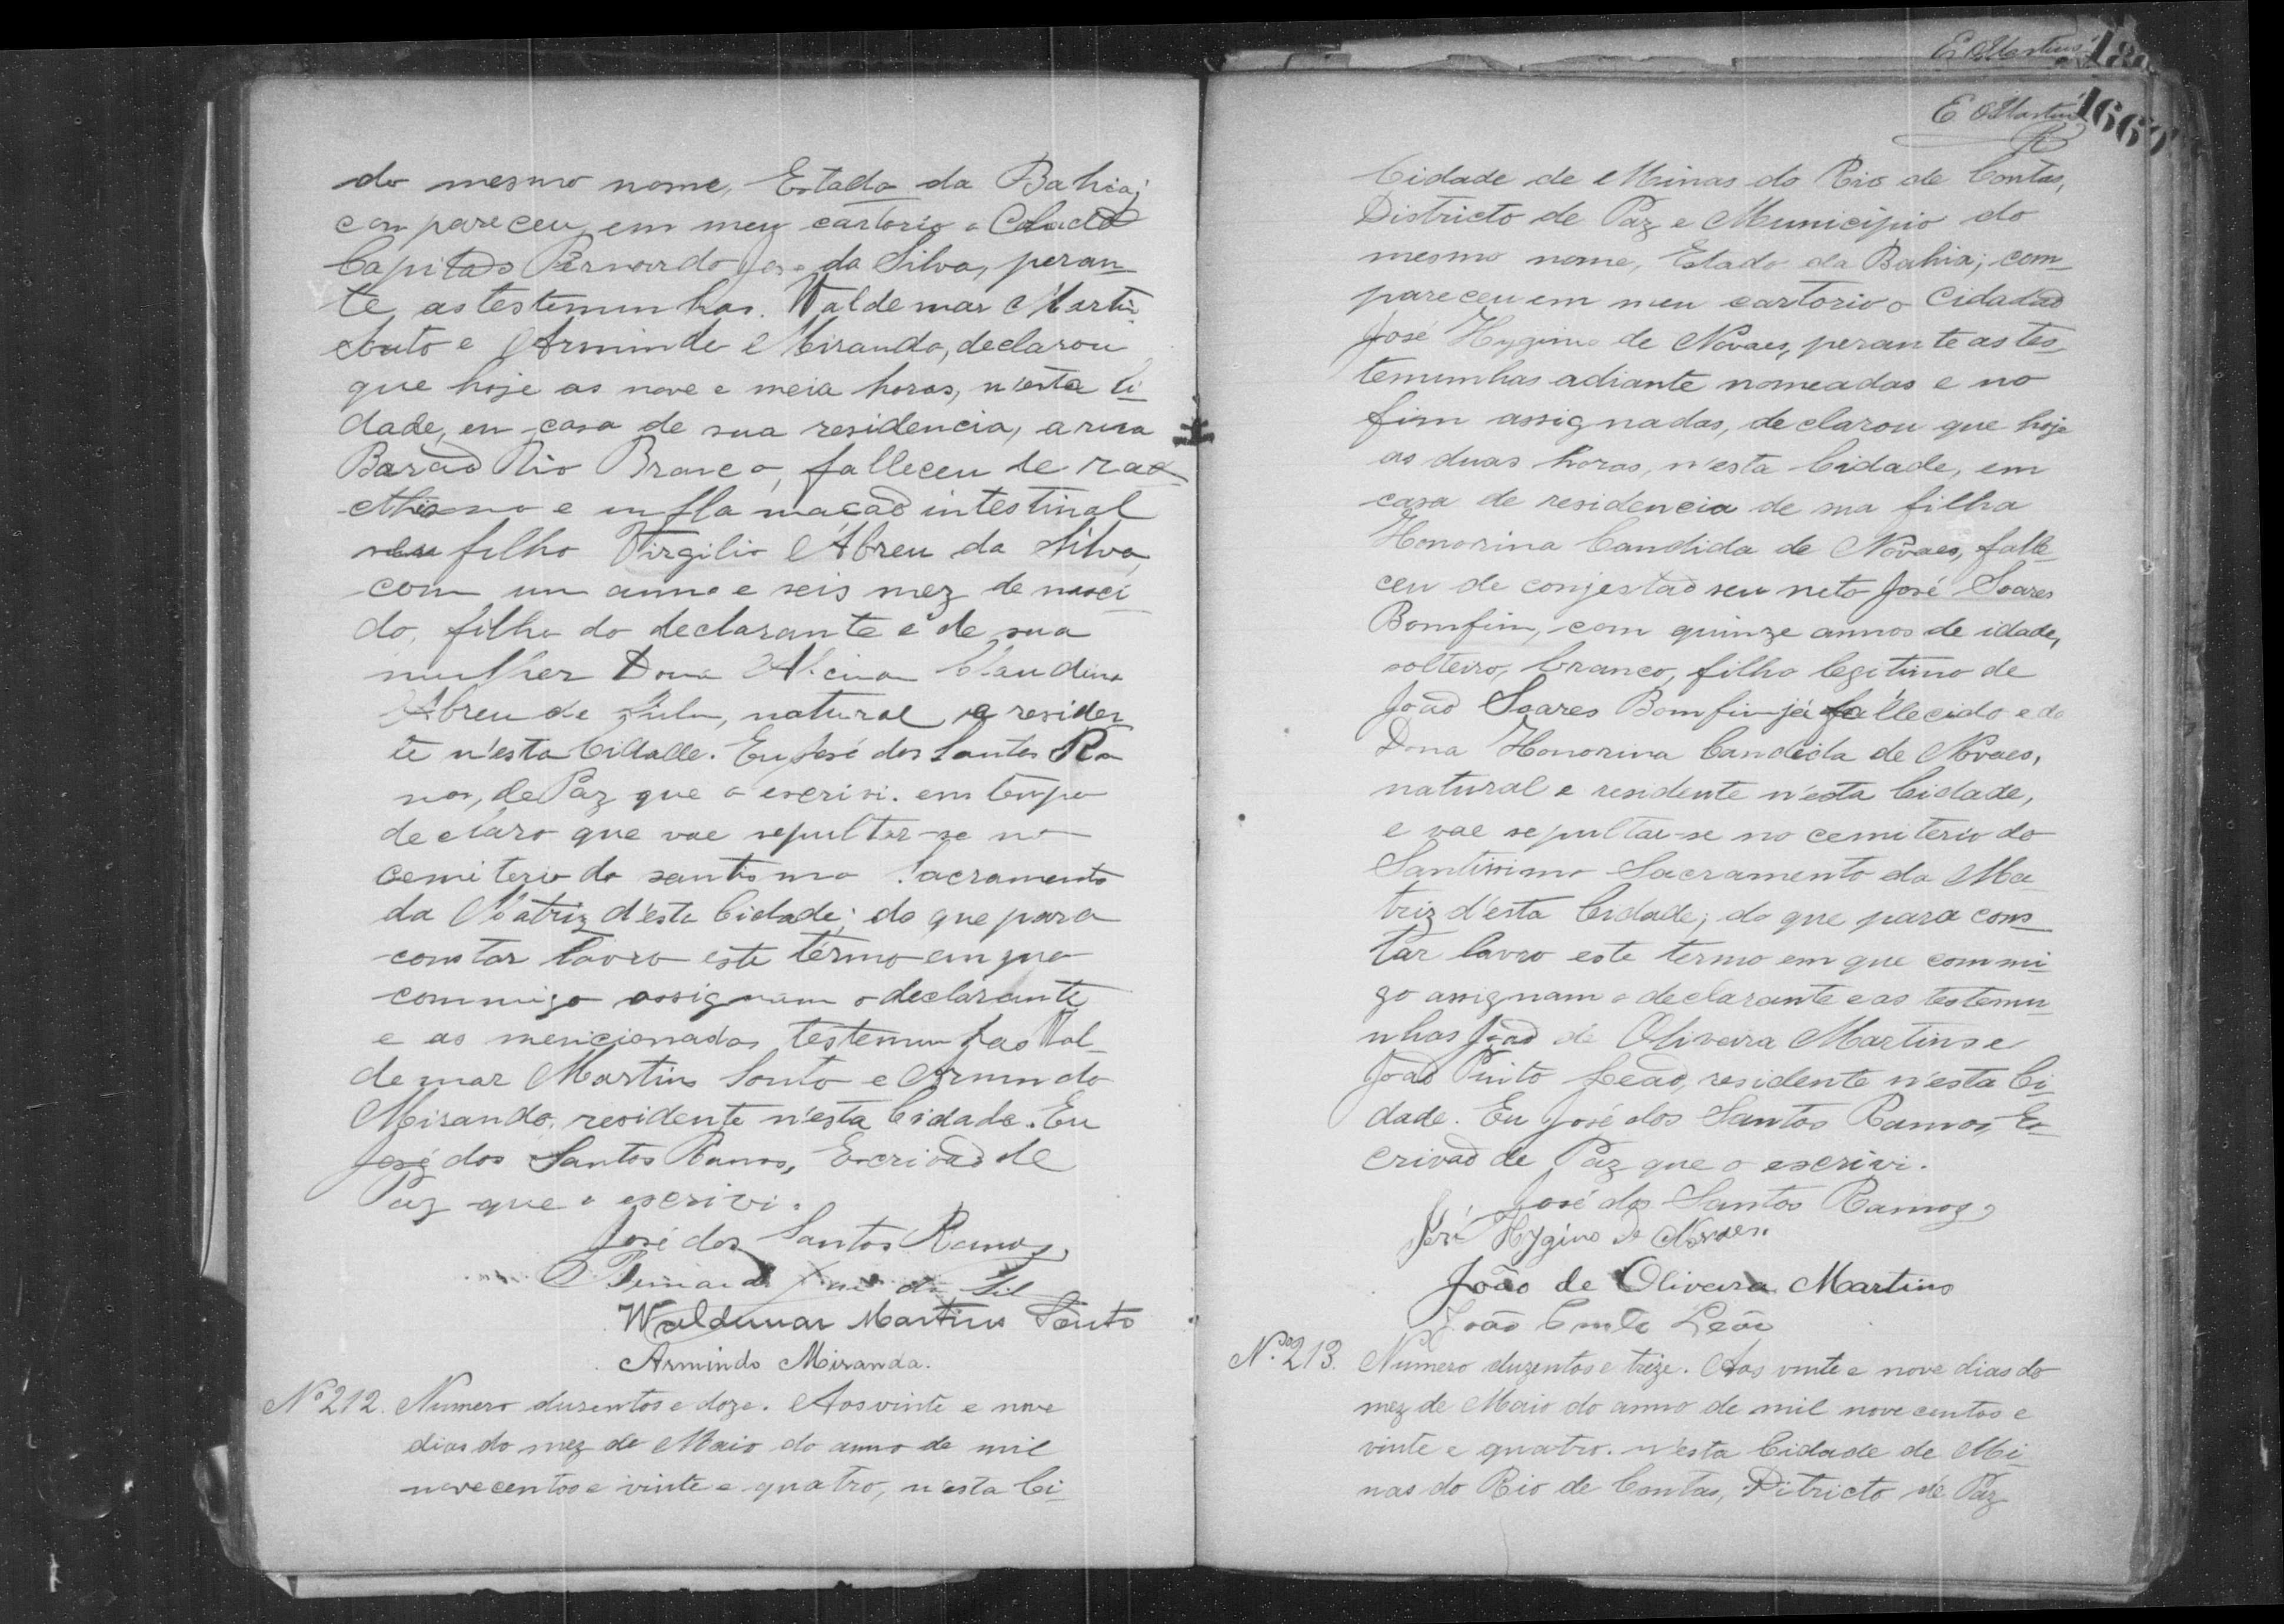 do mesmo nome, Estado da Bahia;
compareceu em meu cartorio o Cidadão
Capitão Bernardo José da Silva, peran
te as testemunhas. Waldemar Martin
Souto e Armindo Miranda, declarou
que hoje as nove e meia horas, n'esta Ci
dade, em casa de sua residencia, a rua
Barão Rio Branco, falleceu de ra
chismo e inflamação intestinal
seu filho Virgilio Abreu da Silva,
com um anno e seis mez de nasci
do, filho do declarante e de sua
mulher Dona Claudina
Abreu de natural e residen
te n'esta Cidade. Eu José dos Santos Ra
mos, de Paz que o escrivi. em tempo
declaro que vae sepultar-se no
cemiterio do santismo Sacramento
da Matriz d'esta Cidade; do que para
constar lavro este termo em que
commigo assignam o declarante
e as mencionadas testemunhas Wal
demar Martins Souto e Armindo
Miranda, residente n'esta Cidade. Eu
José dos Santos Ramos, Escrivão de
Paz que o escrivi.
José dos Santos Ramos
Bernardo José da Sil
Waldemar Martins Souto
Armindo Miranda.
Nº 212. Numero duzentos e doze. Aos vinte e nove
dias do mez de Maio do anno de mil
novecentos e vinte e quatro, n'esta Ci-
E. Martins 18
E. Martins 166
Cidade de Minas do Rio de Contas,
Districto de Paz e Municipio do
mesmo nome, Estado da Bahia; com
pareceu em meu cartorio o Cidadão
José Hygino de Novaes, perante as tes
temunhas adiante nomeadas e no
fim assignadas, declarou que hoje
as duas horas, n'esta Cidade, em
casa de residencia de sua filha
Honorina Candida de Novaes, falle
ceu de conjestão seu neto José Soares
Bomfim, com quinze annos de idade,
solteiro, branco, filho legitimo de
João Soares Bomfim já fallecido e de
Dona Honorina Candida de Novaes,
natural e residente n'esta Cidade,
e vae sepultar-se no cemiterio do
Santissimo Sacramento da Ma
triz d'esta Cidade; do que para cons
tar lavro este termo em que commi
go assignam o declarante e as testemu
nhas João de Oliveira Martins e
João Pinto Leão, residente n'esta Ci
dade. Eu José dos Santos Ramos, Es
crivão de Paz que o escrivi.
José dos Santos Ramos
José Hygino de Novaes.
João de Oliveira Martins
João Leão
Nº 213. Numero duzentos e treze. Aos vinte e nove dias do
mez de Maio do anno de mil nove centos e
vinte e quatro. n'esta Cidade de Mi
nas do Rio de Contas, Ditricto de Paz